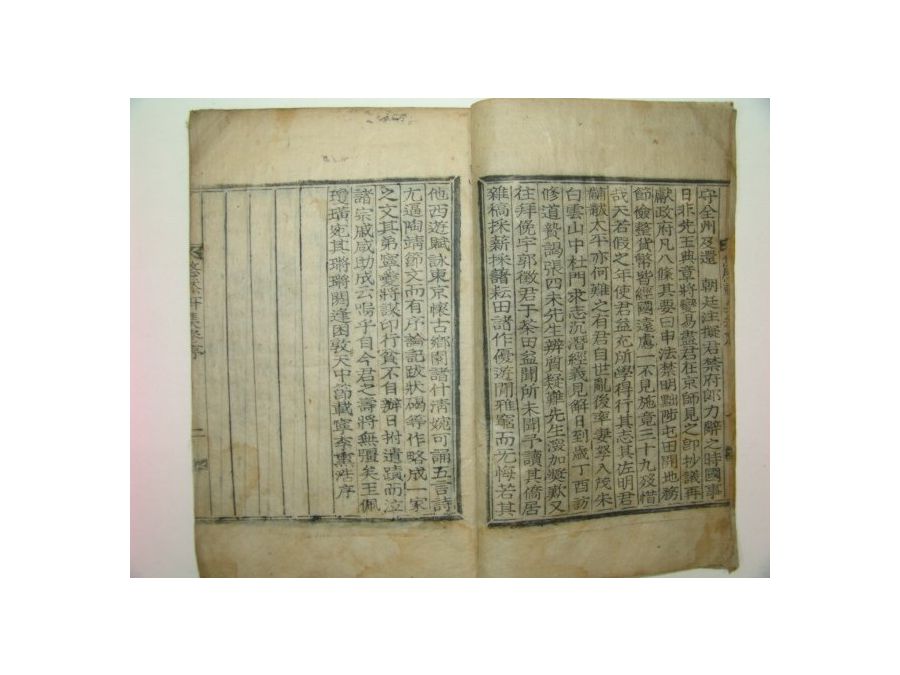 守全州及還 朝廷注擬君禁府郎力辭之時國事
日非先王典章將變易盡君在京師見之卽抄議再
獻政府凡八條其要曰申法禁明黜陟屯田開地務
節儉整貨幣皆經國遠慮一不見施竟三十九歿惜
哉天若假之年使君益充所學得行其志其佐明君
黼黻太平亦何難之有君自世亂後率妻孥入茂朱
白雲山中杜門求志沉潛經義見解日到歲丁酉訪
修道贄謁張四未先生辨質疑難先生深加奬歎又
往拜俛宇郭徵君于茶田益聞所未聞予讀其僑居
雜稿採薪採諸耘田諸作優遊閒雅窮而无悔若其
他西遊賦詠東京懷古鄕園諸什淸婉可誦五言詩
尤逼陶靖節文而有序論記跋狀碣等作略成一家
之文其弟寧愛將謀印行貧不自辦日拊遺蹟而泣
諸宗戚咸助成云嗚乎自今君之壽將無彊矣玉佩
瓊璜宛其瑯瑯閼逢困敦天中節載寧李熏晧序
軒集序 二